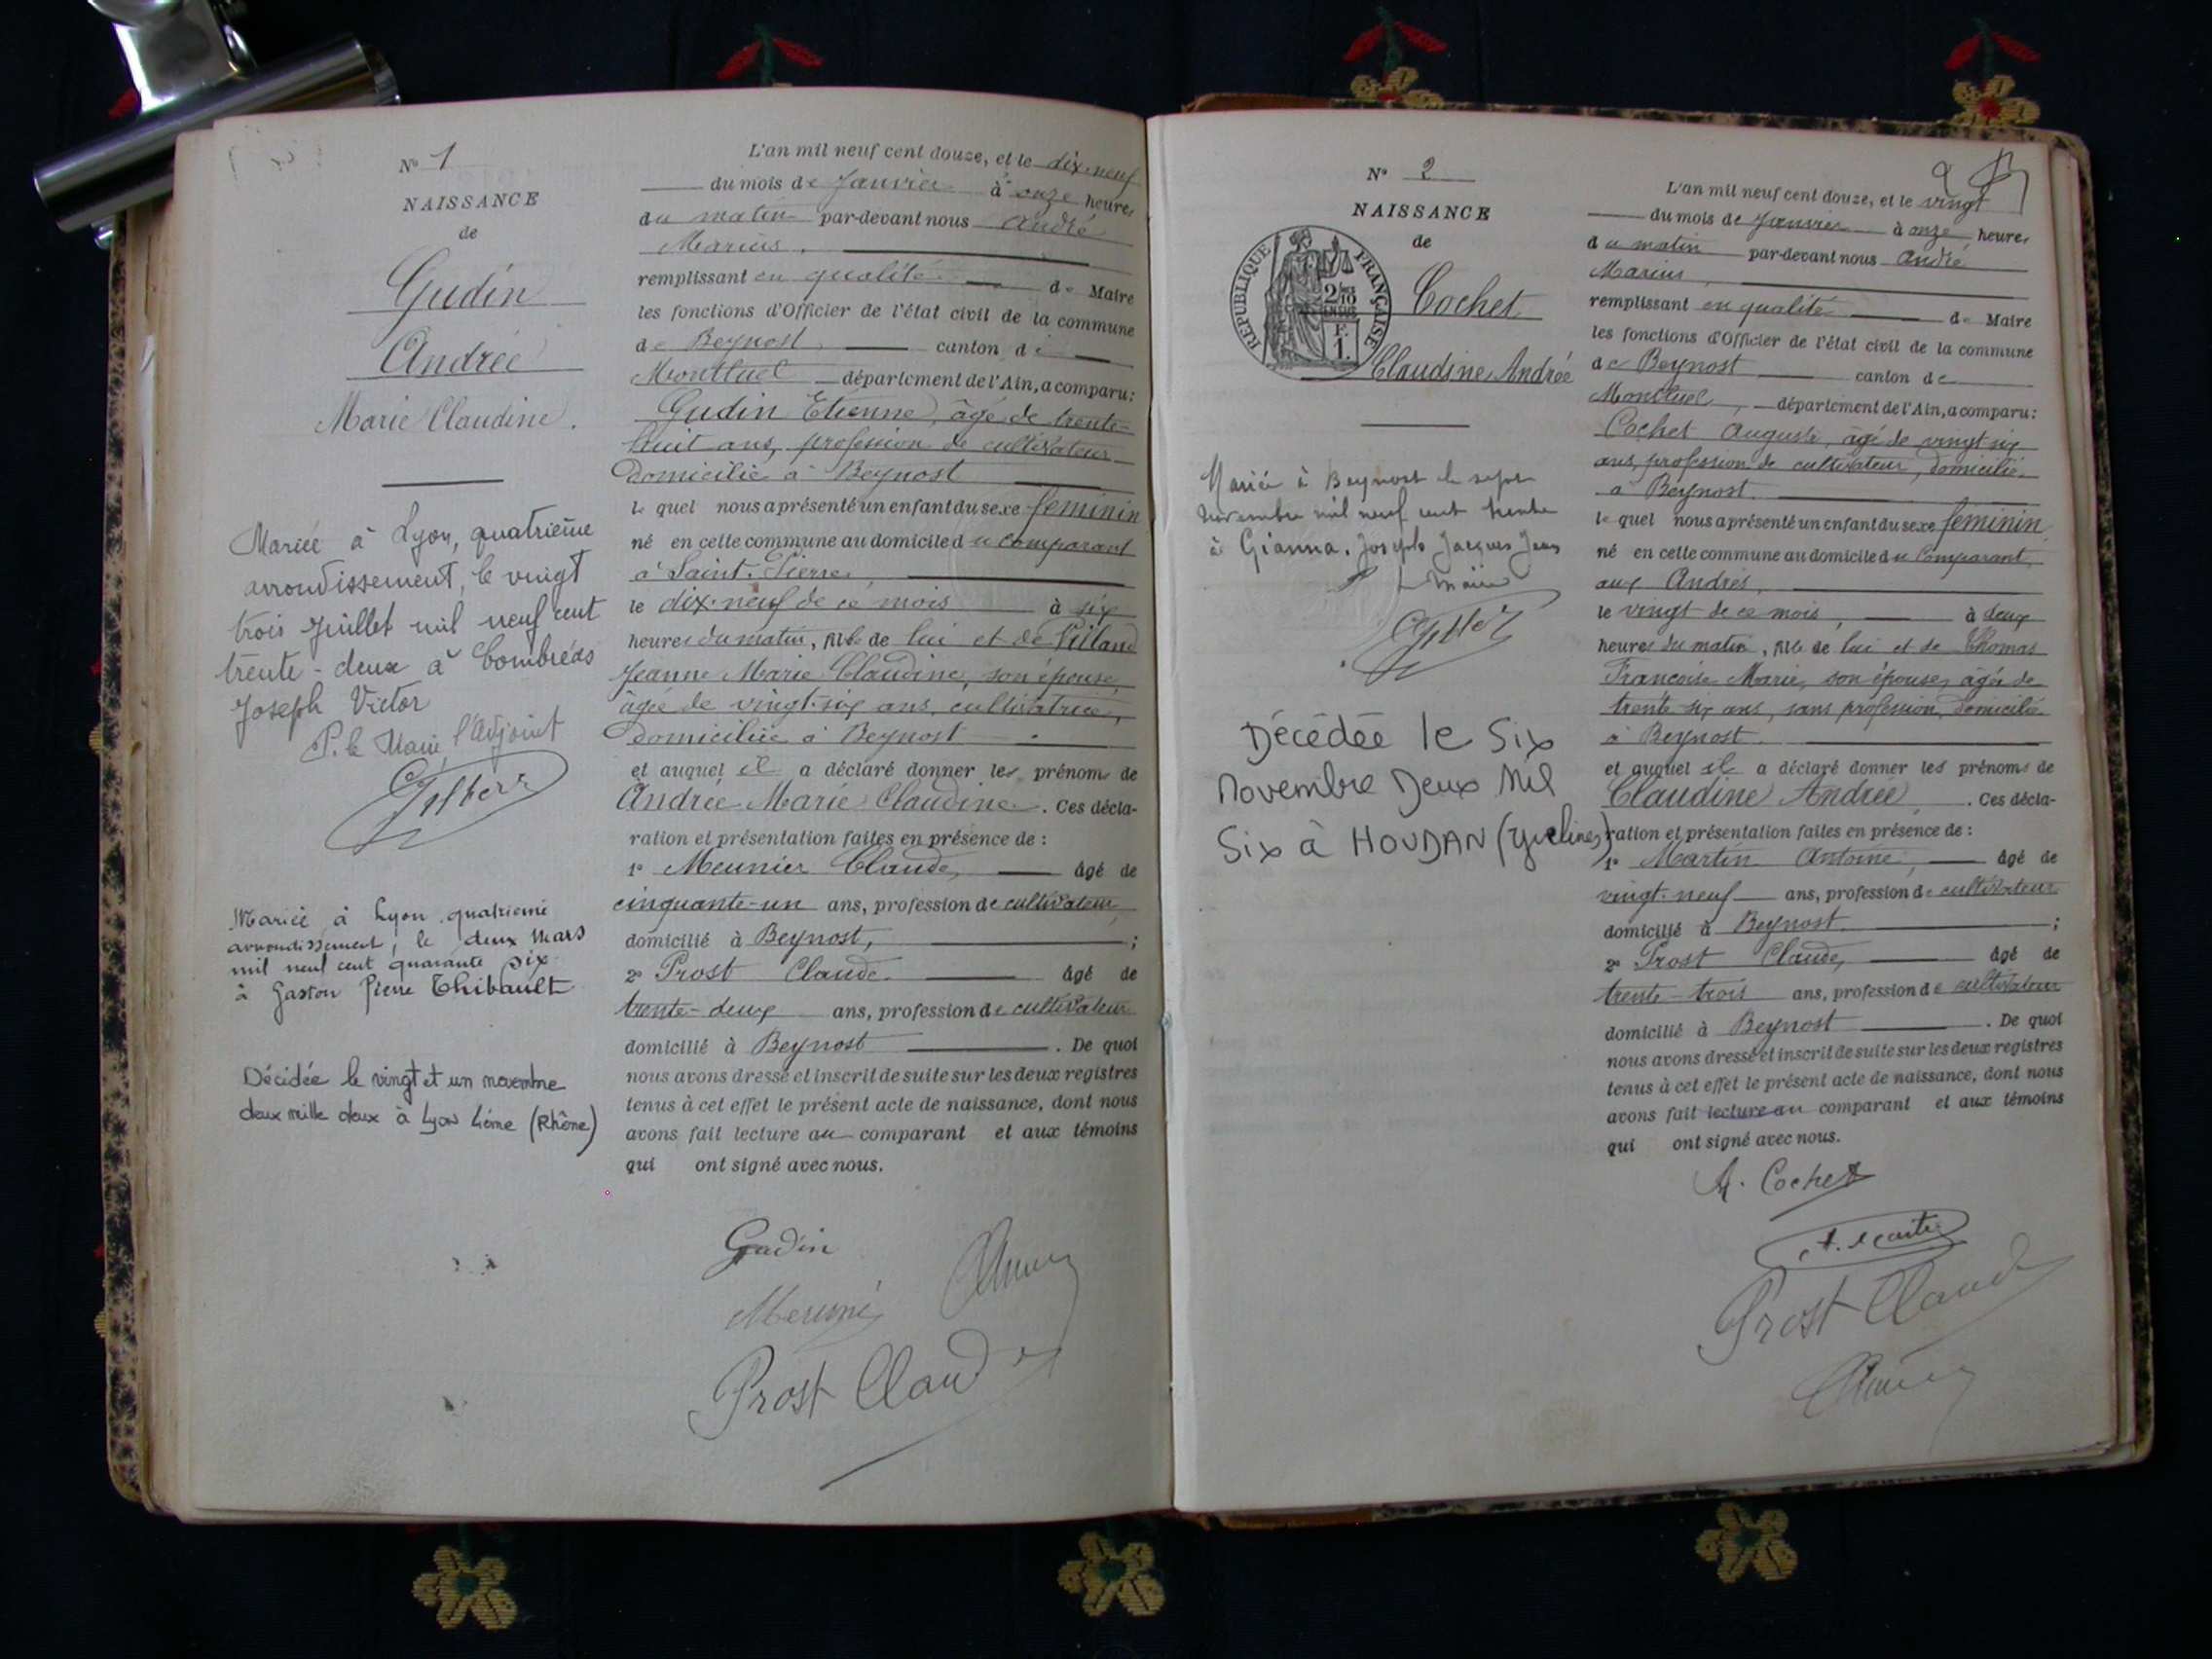 N° 1
NAISSANCE
de
Gudin
Andrée
Marie Claudine.
Mariée à Lyon, quatrième
arrondissement, le vingt
trois Juillet mil neuf cent
trente-deux à Combréas
Joseph Victor
P. le Maire, l'Adjoint
Mariée à Lyon quatrième
arrondissement, le deux Mars
mil neuf cent quarante six
à Gaston Pierre Thibault
Décédée le vingt et un novembre
deux mille deux à Lyon 4ème (Rhône)
L'an mil neuf cent douze, et le dix-neuf
du mois de Janvier à onze heures
du matin par-devant nous André
Marius,
remplissant en qualité de Maire
les fonctions d'Officier de l'état civil de la commune
de Beynost, canton de
Montluel département de l'Ain, a comparu:
Gudin Etienne, âgé de trente-
huit ans, profession de cultivateur
domicilié à Beynost
lequel nous a présenté un enfant du sexe féminin
né en cette commune au domicile du comparant
à Saint-Pierre,
le dix-neuf de ce mois à six
heures du matin, fille de lui et de
Jeanne Marie Claudine, son épouse,
âgée de vingt-six ans, cultivatrice,
domiciliée à Beynost
et auquel il a déclaré donner les prénoms de
Andrée Marie Claudine. Ces décla-
ration et présentation faites en présence de :
1° Meunier Claude, âgé de
cinquante-un ans, profession de cultivateur
domicilié à Beynost, ;
2° Prost Claude âgé de
trente-deux ans, profession de cultivateur
domicilié à Beynost . De quoi
nous avons dressé et inscrit de suite sur les deux registres
tenus à cet effet le présent acte de naissance, dont nous
avons fait lecture au comparant et aux témoins
qui ont signé avec nous.
Gudin
Prost Claude
N° 2
NAISSANCE
de
REPUBLIQUE FRANÇAISE
2/10
F.
1.
Cochet
Claudine Andrée
Mariée à Beynost le sept
novembre mil neuf cent trente
à Gianna, Joseph Jacques Jean
P Le Maire
Décédée le Six
Novembre Deux Mil
Six à HOUDAN (Yvelines)
2
L'an mil neuf cent douze, et le vingt
du mois de Janvier à onze heures
du matin par-devant nous André
Marius,
remplissant en qualité de Maire
les fonctions d'Officier de l'état civil de la commune
de Beynost canton de
Montluel, département de l'Ain, a comparu:
Cochet Auguste, âgé de vingt six
ans, profession de cultivateur, domicilié
à Beynost
lequel nous a présenté un enfant du sexe féminin
né en cette commune au domicile du Comparant,
aux Andrés,
le vingt de ce mois, à deux
heures du matin, fille de lui et de Thomas
Françoise Marie, son épouse, âgée de
trente-six ans, sans profession, domiciliée
à Beynost
et auquel il a déclaré donner les prénoms de
Claudine Andrée . Ces décla-
ration et présentation faites en présence de :
1° Martin Antoine, âgé de
vingt-neuf ans, profession de cultivateur
domicilié à Beynost ;
2° Prost Claude, âgé de
trente-trois ans, profession de cultivateur
domicilié à Beynost . De quoi
nous avons dressé et inscrit de suite sur les deux registres
tenus à cet effet le présent acte de naissance, dont nous
avons fait lecture au comparant et aux témoins
qui ont signé avec nous.
A. Cochet
Prost Claude